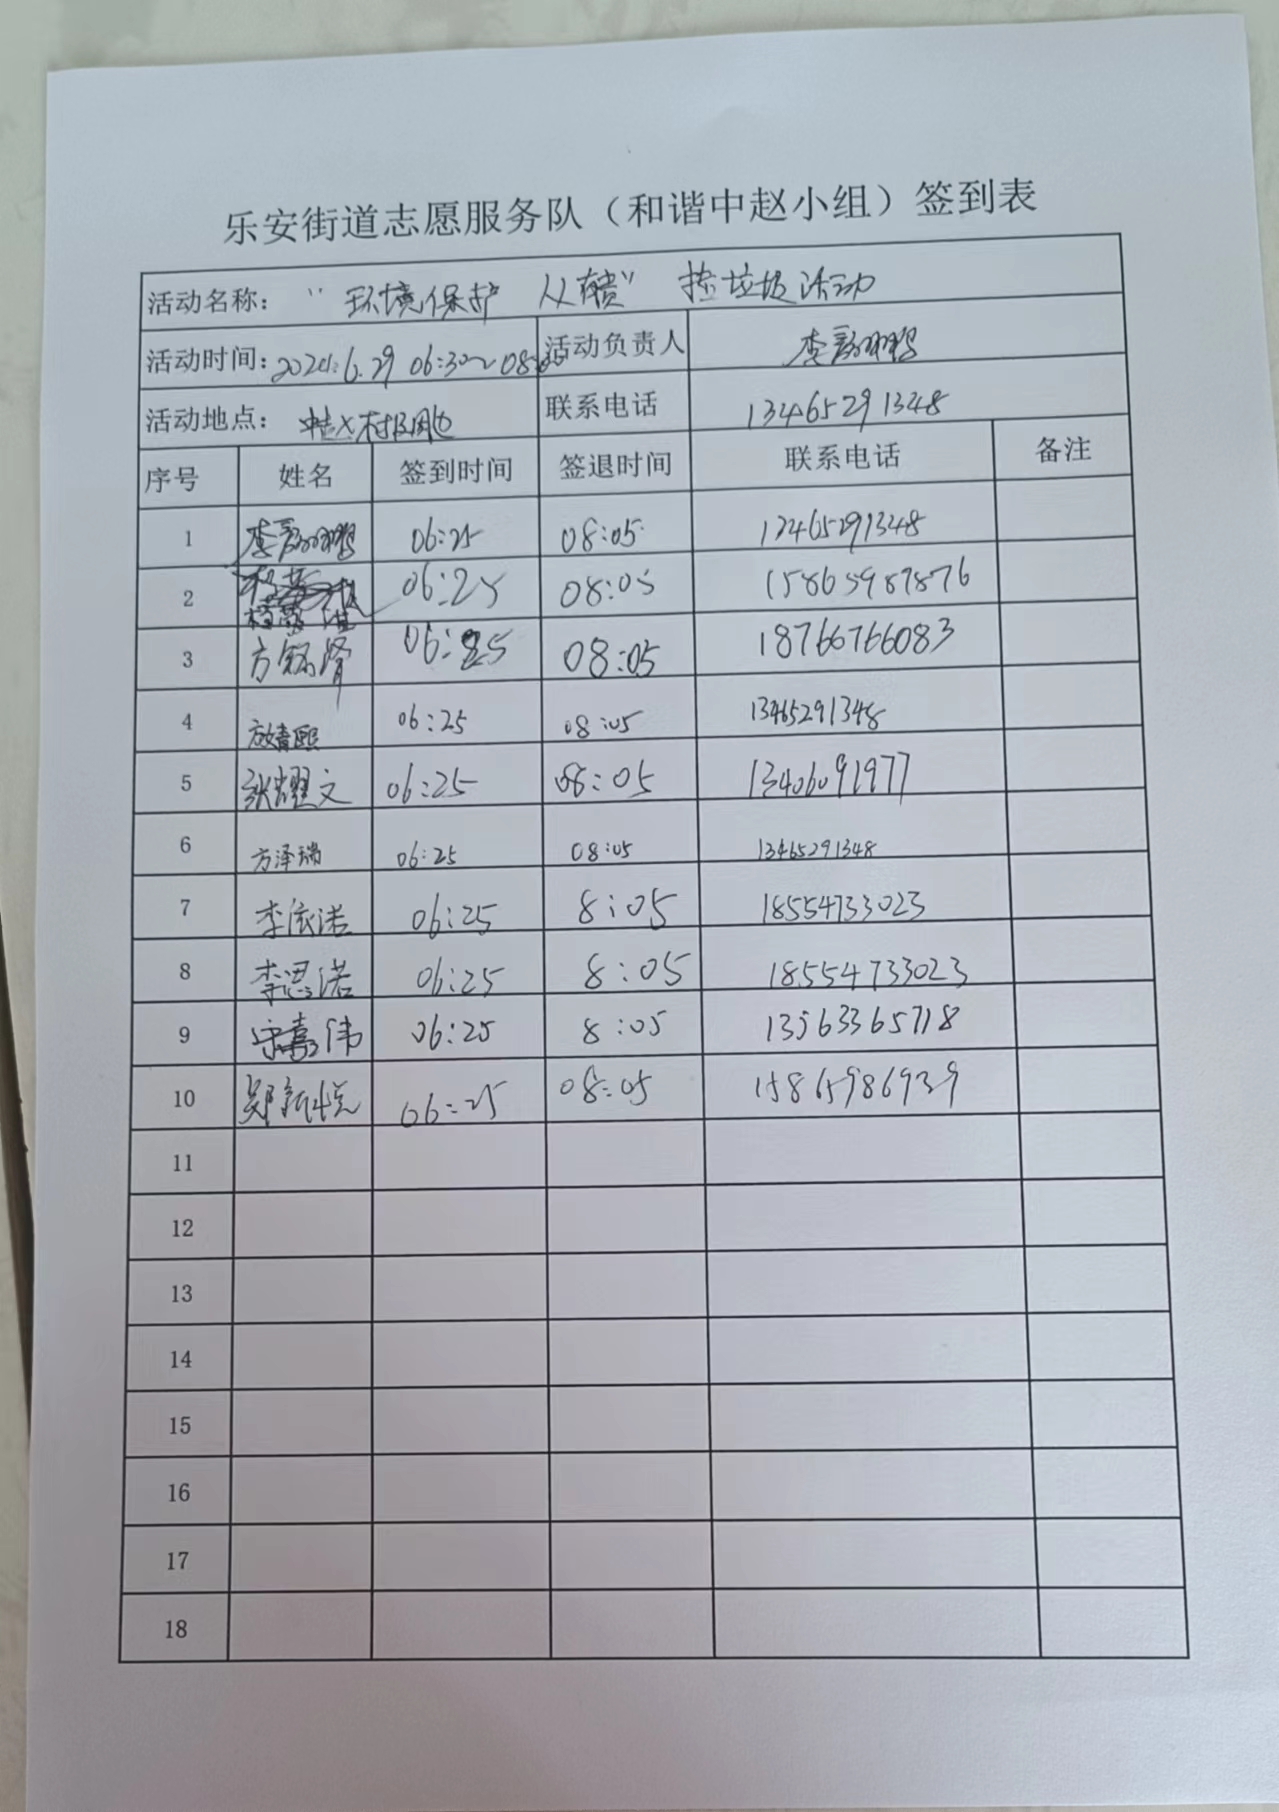 乐安街道志愿服务队（和谐中赵小组）签到表
活动名称： “环境保护 从 ” 捡垃圾活动
活动时间：2024.6.29 06:30~08:05 活动负责人 李
活动地点： 中赵村周边 联系电话 13465291348
序号 姓名 签到时间 签退时间 联系电话 备注
1 李 06:25 08:05 13465291348
2 06:25 08:05 15865987876
3 方 06:25 08:05 18766766083
4 06:25 08:05 13465291348
5 张耀文 06:25 08:05 13406091977
6 方泽瑞 06:25 08:05 13465291348
7 李依诺 06:25 8:05 18554733023
8 李思诺 06:25 8:05 18554733023
9 宋嘉伟 06:25 8:05 13563365718
10 郑新悦 06:25 08:05 15865986939
11
12
13
14
15
16
17
18